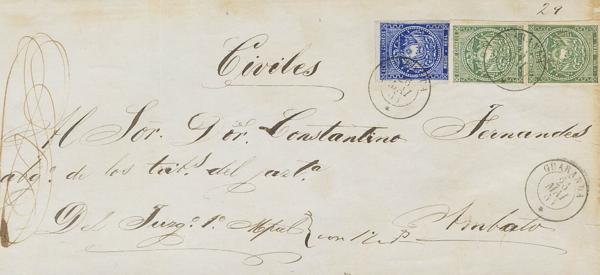 29
Civiles
Al Sor. Dor. Constantino Fernandes
abo. de los tribs. del
Del Juzgo. 1o. Mpal con
Ambato
GUARANDA
23
MAI